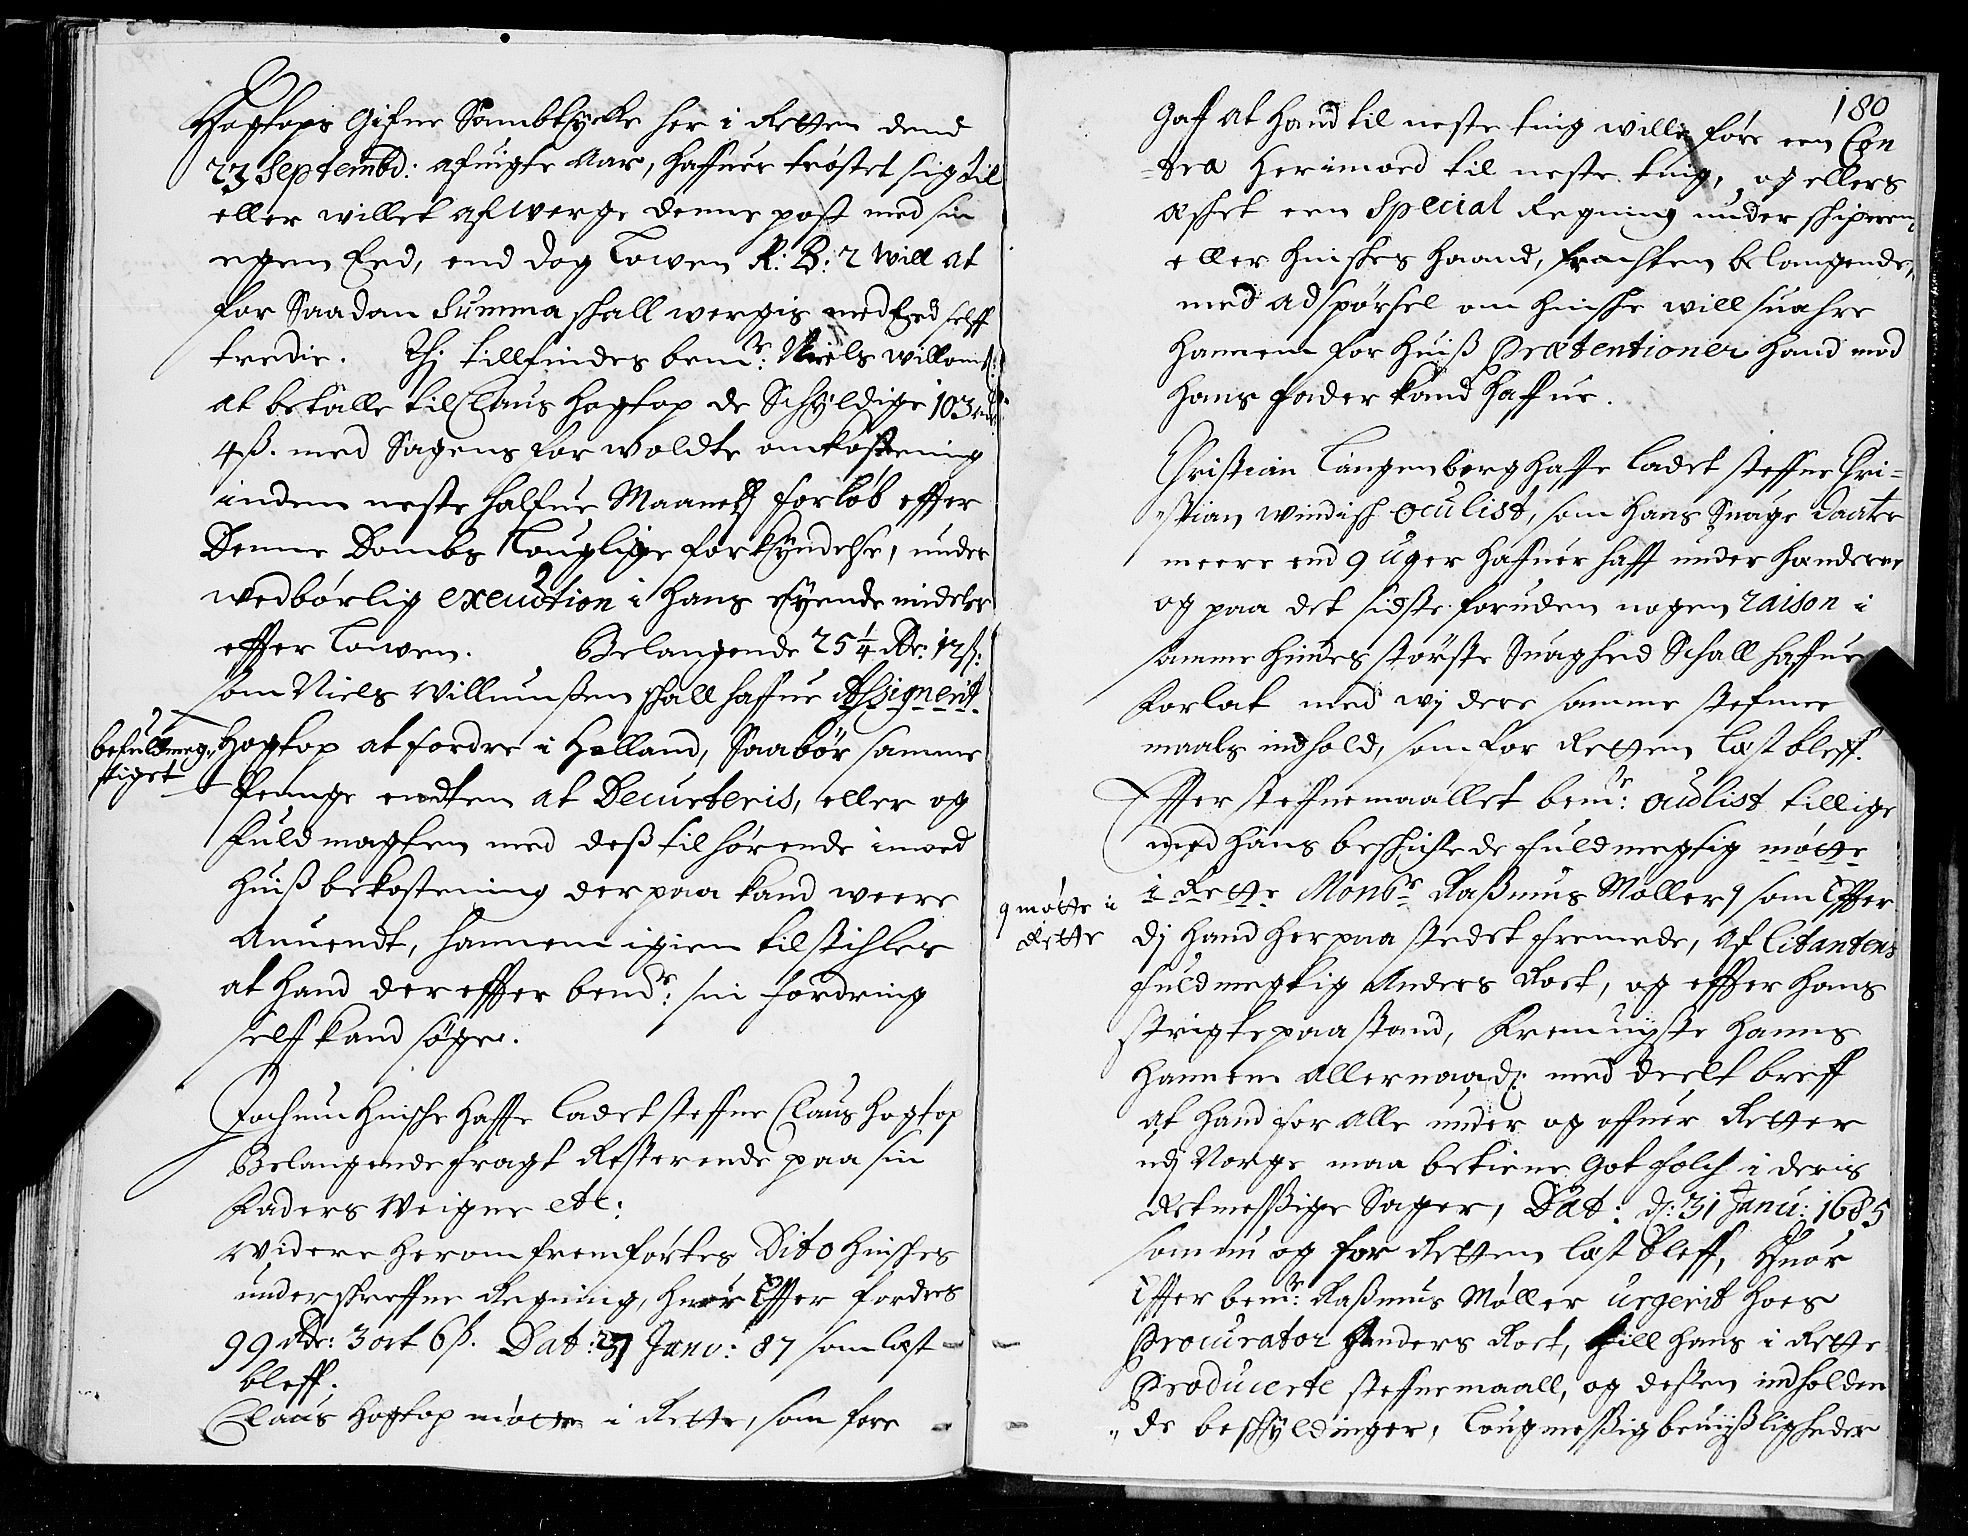 Hogtops Gifne Sambtycke her i Retten dend
23 Septembd: afuigte Aar, haffuer trøstet sig til
eller willet afwerge denne post med sin
egen Eed, end dog Lowen R: B: 2 will at
for Saadan Summa shall wergis med Eed selff
tredie. Thj tillfindes bemr: Niels willoms:
at betalle til Claus Hogtop de Schyldige 103
4ß. med Sagens forwoldte omkostening
inden neste halfue Maanets forløb effter
Denne Dombs Louglige forkyndelse, under
wedbørlig execution i hans Eyende mideler
effter Lowen. Belangende 25¼ Rdr: 12ß:
som Niels Willumßen shall haffue Assignerit
befuldmeg-
tiget
Hogtop at fordre i Holland, Saa bør samme
Pennge endten at Decurteris, eller og
fuldmagten med deß tilhørende imoed
huiß bekostening der paa kand weere
Anuendt, hannem igien tilstilles
at hand der effter bemdr: sin fordring
self kand søge.
Jochum Hinsche haffe ladet steffne Claus Hogtop
Belangende fragt Resterende paa sin
Faders Weigne etc:
widere herom fremførtes Dito Hinsches
undershreffne Regning, huor Effter fordres
99 Rdr: 3 ort 6ß. Dat: 31 Janv: 87 som læst
bleff.
Claus Hogtop møtte i Rette, som fore
180
gaff at hand til neste ting wille føre een Con
=tra herimoed til neste ting, og ellers
æshet een Special Regning under shiperens
eller Hinshes haand, frachten belangende,
med adspørsel om Hinshe will suahre
hannem for huiß Prætentioner hand mod
hans fader kand haffue.
Christian Langenberg haffe ladet steffne Chri=
stian Windish Oculist, som hans Suage Daater
meere end 9 Uger haffuer hafft under hænderne
og paa det sidste foruden nogen raison i
samme hindes største Suaghed Schall haffue
forlat med wjdere samme stefne
maals indhold, som for Retten læst bleff.
Effter steffnemaallet bemr: Oculist tillige
med hans beschichede fuldmegtig møtte
i Rette Monsr Raßmus Møller, som Effter
møtte i
Rette
dj hand her paa stedet fremede, af Citantens
fuldmegtig Anders Rost, og effter hans
strigte paastand, fremuijste hanns
hannem allernaadj: med deelt breff
at hand for alle under og offuer Retter
udj Norge maa betiene Got folch i deris
Retmeßige Sager, Dat: dj: 31 Janu: 1685
som nu og for Retten læst bleff, Huor
Effter bemr: Raßmus Møller urgerit hoes
Procurator Anders Rost, till hans i Rette
Producerte steffnemaall, og deßen indholden
de beschyldinger, Lougmeßig beuißligheder